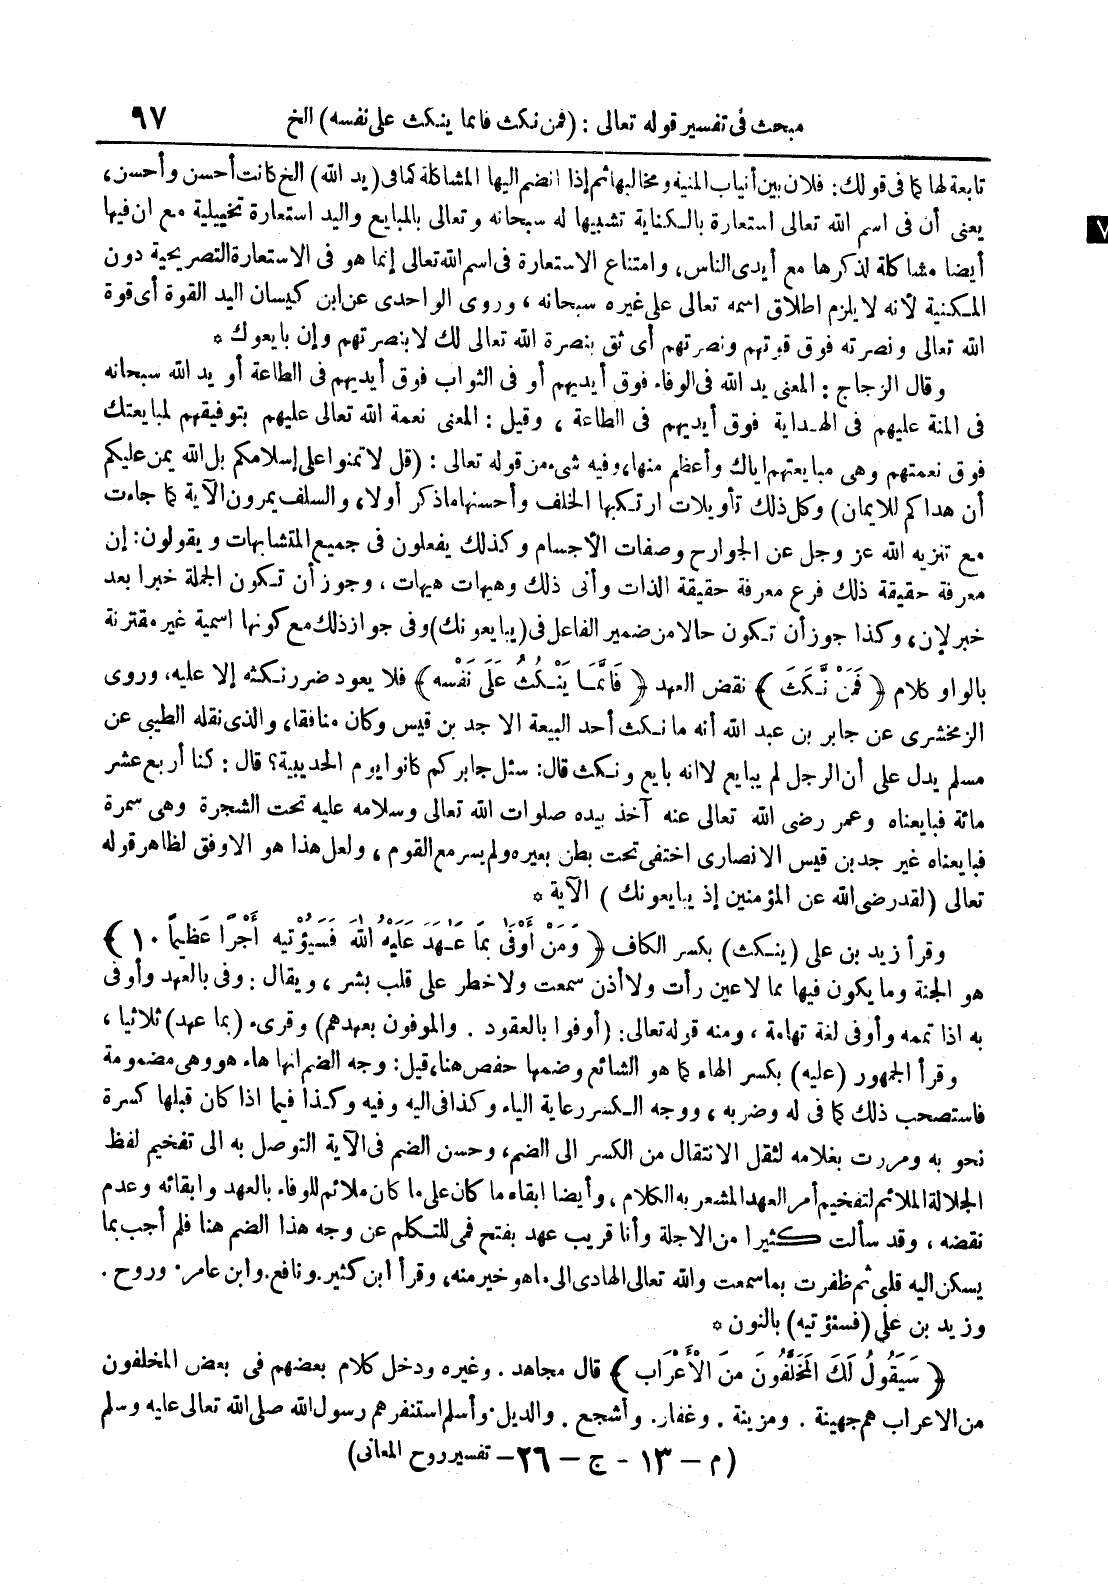 مبحث في تفسير قوله تعالى : (فمن نكث فانما ينكث على نفسه) الخ ٩٧
تابعة لها كما فى قولك: فلان بين أنياب المنية ومخالبها ثم إذا انضم اليها المشاكلة كما فى (يد الله) الخ كانت أحسن وأحسن،
يعنى أن فى اسم الله تعالى استعارة بالكناية تشبيها له سبحانه وتعالى بالمبايع واليد استعارة تخييلية مع ان فيها
أيضا مشاكلة لذكرها مع أيدى الناس، وامتناع الاستعارة فى اسم الله تعالى إنما هو فى الاستعارة التصريحية دون
المكنية لأنه لا يلزم اطلاق اسمه تعالى على غيره سبحانه ، وروى الواحدى عن ابن كيسان اليد القوة أى قوة
الله تعالى ونصرته فوق قوتهم ونصرتهم أى ثق بنصرة الله تعالى لك لا بنصرتهم وإن بايعوك *
وقال الزجاج : المعنى يد الله فى الوفاء فوق أيديهم أو فى الثواب فوق أيديهم فى الطاعة أو يد الله سبحانه
فى المنة عليهم فى الهداية فوق أيديهم فى الطاعة ، وقيل : المعنى نعمة الله تعالى عليهم بتوفيقهم لمبايعتك
فوق نعمتهم وهى مبايعتهم اياك وأعظم منها، وفيه شىء من قوله تعالى : (قل لا تمنوا على إسلامكم بل الله يمن عليكم
أن هداكم للايمان) وكل ذلك تأويلات ارتكبها الخلف وأحسنها ما ذكر أولا، والسلف يمرون الآية كما جاءت
مع تنزيه الله عز وجل عن الجوارح وصفات الأجسام وكذلك يفعلون فى جميع المتشابهات ويقولون: إن
معرفة حقيقة ذلك فرع معرفة حقيقة الذات وأنى ذلك وهيهات هيهات ، وجوز أن تكون الجملة خبرا بعد
خبر لإن، وكذا جوز أن تكون حالا من ضمير الفاعل فى (يبايعونك) وفى جواز ذلك مع كونها اسمية غير مقترنة
بالواو كلام ﴿ فَمَنْ نَّكَثَ ﴾ نقض العهد ﴿ فَانَّمَا يَنْكُثُ عَلَى نَفْسه ﴾ فلا يعود ضرر نكثه إلا عليه، وروى
الزمخشرى عن جابر بن عبد الله أنه ما نكث أحد البيعة الا جد بن قيس وكان منافقا، والذى نقله الطيبى عن
مسلم يدل على أن الرجل لم يبايع لا انه بايع ونكث قال: سئل جابر كم كانوا يوم الحديبية؟ قال : كنا أربع عشر
مائة فبايعناه وعمر رضى الله تعالى عنه آخذ بيده صلوات الله تعالى وسلامه عليه تحت الشجرة وهى سمرة
فبايعناه غير جد بن قيس الانصارى اختفى تحت بطن بعيره ولم يسر مع القوم ، ولعل هذا هو الاوفق لظاهر قوله
تعالى (لقد رضى الله عن المؤمنين إذ يبايعونك ) الآية *
وقرأ زيد بن على (ينكث) بكسر الكاف ﴿ وَمَنْ أَوْفَى بمَا عَاهَدَ عَلَيْهُ اللهَ فَسَيُؤْتيه أَجْرًا عَظيمًا ١٠ ﴾
هو الجنة وما يكون فيها مما لا عين رأت ولا أذن سمعت ولا خطر على قلب بشر ، ويقال : وفى بالعهد وأوفى
به اذا تممه وأوفى لغة تهامة ، ومنه قوله تعالى: (أوفوا بالعقود . والموفون بعهدهم) وقرىء (بما عهد) ثلاثيا ،
وقرأ الجمهور (عليه) بكسر الهاء كما هو الشائع وضمها حفص هنا، قيل: وجه الضم انها هاء هو وهى مضمومة
فاستصحب ذلك كما فى له وضربه ، ووجه الكسر رعاية الياء وكذا فى اليه وفيه وكذا فيما اذا كان قبلها كسرة
نحو به ومررت بغلامه لثقل الانتقال من الكسر الى الضم، وحسن الضم فى الآية التوصل به الى تفخيم لفظ
الجلالة الملائم لتفخيم أمر العهد المشعر به الكلام ، وأيضا ابقاء ما كان على ما كان ملائم للوفاء بالعهد وابقائه وعدم
نقضه ، وقد سألت كثيرا من الاجلة وأنا قريب عهد بفتح فمى للتكلم عن وجه هذا الضم هنا فلم أجب بما
يسكن اليه قلبى ثم ظفرت بما سمعت والله تعالى الهادى الى ما هو خير منه، وقرأ ابن كثير. ونافع. وابن عامر. وروح .
وزيد بن على (فسنؤتيه) بالنون *
﴿ سَيَقُولُ لَكَ الْمُخَلَّفُونَ منَ الْأَعْرَاب ﴾ قال مجاهد . وغيره ودخل كلام بعضهم فى بعض المخلفون
من الاعراب هم جهينة . ومزينة . وغفار. وأشجع . والديل. وأسلم استنفرهم رسول الله صلى الله تعالى عليه وسلم
(م – ١٣ - ج – ٢٦ – تفسير روح المعانى)
٧